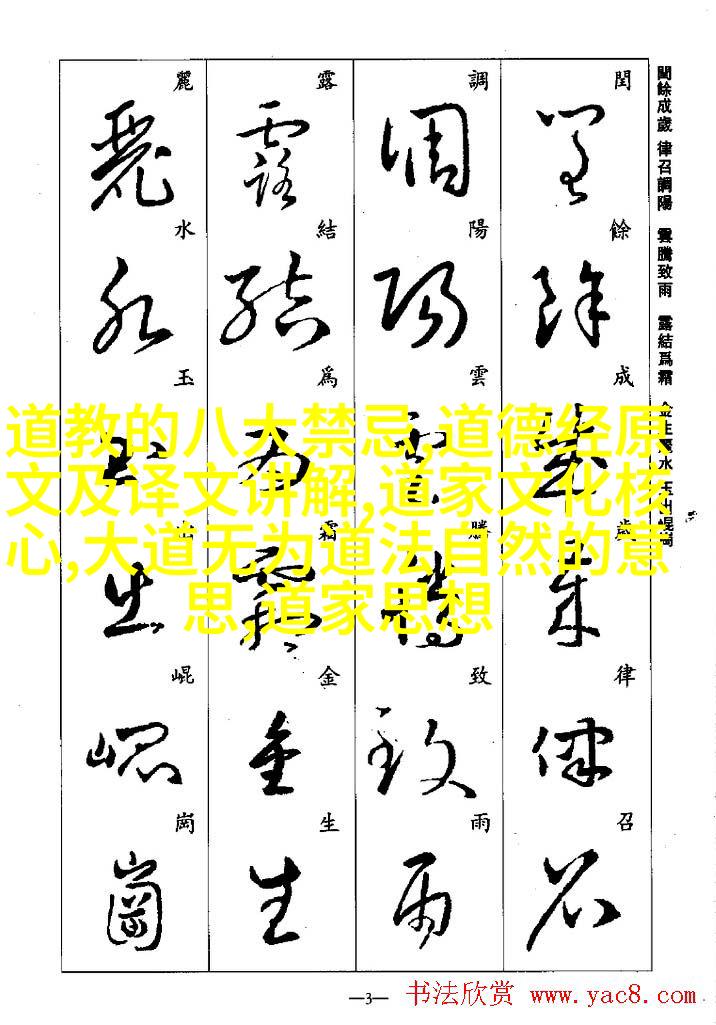 閏餘成歲 律召調陽 雲騰致雨 露結爲霜 金生麗水 玉出崐崗
閏餘成歲律召
調陽雲騰致雨
露結爲霜金生
麗水玉出崐崗
道教的八大禁忌,道德经原
文及译文讲解,道家文化核
心,大道无为道法自然的意
思,道家思想
—3—
书法欣赏 www.yac8.com